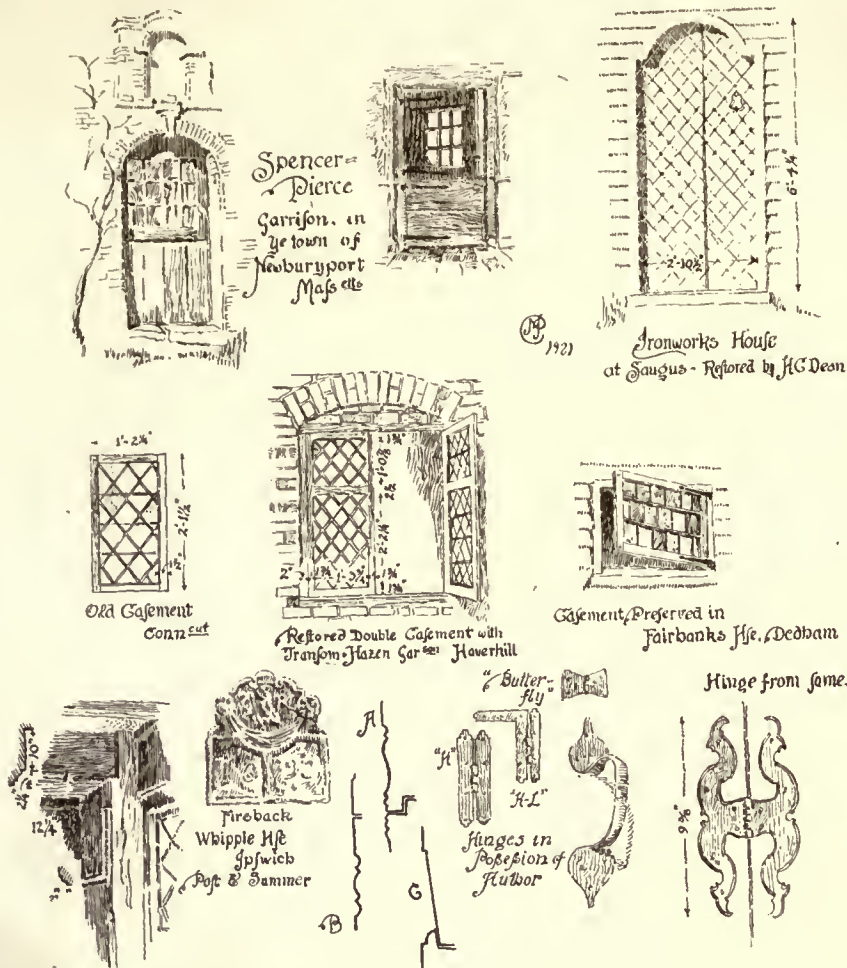 Spencer=
Pierce
Garrison, in
ye town of
Newburyport
Mass etts
6'-4¼"
2'-10½"
MP
1921
Ironworks House
at Saugus - Restored by HC Dean
1'-2¼"
2'-1½"
1½"
Old Casement
Conn cut
1¾"
1'-0⅞"
2½
2'-2¼"
2"
1¾
1'-3¾"
1¾"
1¾"
Restored Double Casement with
Transom-Hazen Gar son Haverhill
Casement, Preserved in
Fairbanks Hse, Dedham
12¼
2"
Fireback
Whipple Hse
Ipswich
Post & Summer
A
B
C
"Butter-
fly"
"H"
"H-L"
Hinges in
Possession of
Author
Hinge from same.
9⅜"